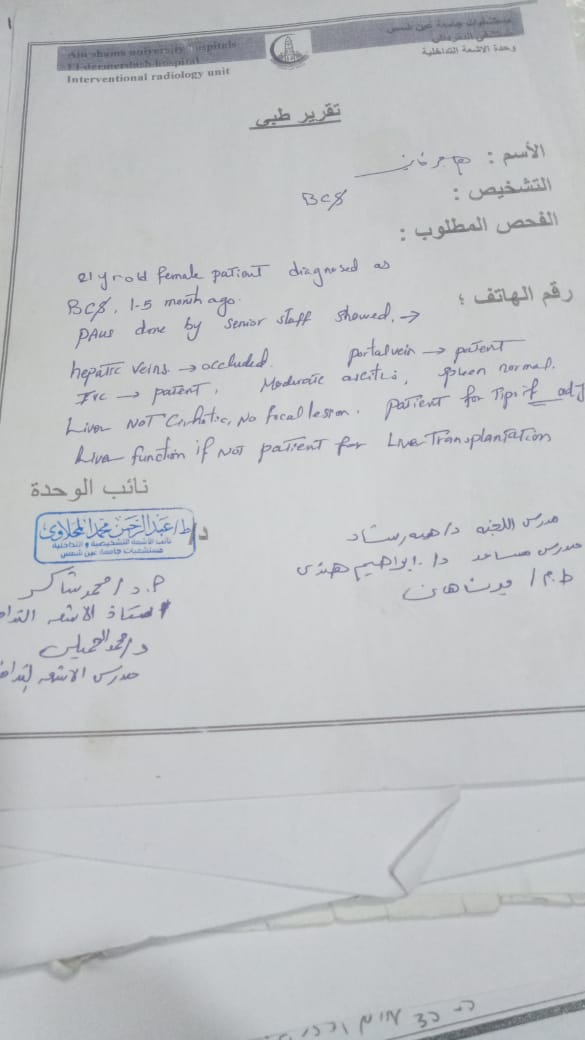 ١
Ain shams university Hospitals
El-demerdash hospital
Interventional radiology unit
مستشفيات جامعة عين شمس
مستشفى الدمرداش
وحدة الاشعة التداخلية
تقرير طبى
الأسم : هاجر
التشخيص : BCS
الفحص المطلوب :
21 yr old female patient diagnosed as
BCS, 1-5 month ago.
رقم الهاتف :
PAUS done by senior staff showed →
hepatic veins → occluded. portal vein → patent
IVC → patent, Moderate ascitis, spleen normal.
Liver Not Cirrhotic, No focal lesion. patient for Tips if
Liver function if Not patient for Liver Transplantation
نائب الوحدة
د/
ط/عبدالرحمن محمد المحلاوى
نائب الأشعة التشخيصية و التداخلية
مستشفيات جامعة عين شمس
مدرس اللجنه د/ هبه رشاد
مدرس مساعد د/ ابراهيم
ط.م/
م.د/ احمد شاكر
استاذ الاشعه
د/محمد
مدرس الاشعه